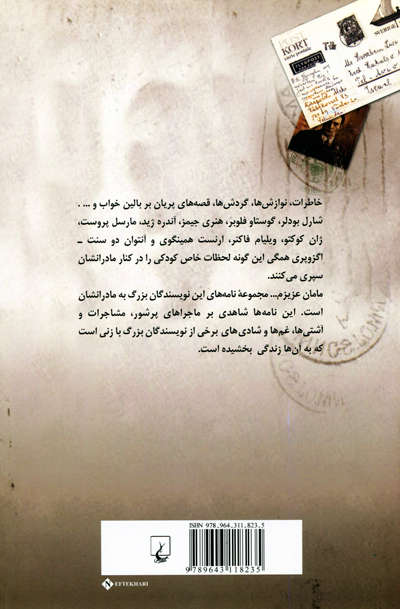 KORT
خاطرات، نوازش‌ها، گردش‌ها، قصه‌های پریان بر بالین خواب و ... .
شارل بودلر، گوستاو فلوبر، هنری جیمز، آندره ژید، مارسل پروست،
ژان کوکتو، ویلیام فاکنر، ارنست همینگوی و آنتوان دو سنت ـ
اگزوپری همگی این گونه لحظات خاص کودکی را در کنار مادرانشان
سپری می‌کنند.
مامان عزیزم... مجموعهٔ نامه‌های این نویسندگان بزرگ به مادرانشان
است. این نامه‌ها شاهدی بر ماجراهای پرشور، مشاجرات و
آشتی‌ها، غم‌ها و شادی‌های برخی از نویسندگان بزرگ با زنی است
که به آن‌ها زندگی بخشیده است.
ISBN 978.964.311.823.5
9 789643 118235
N EFTEKHARI